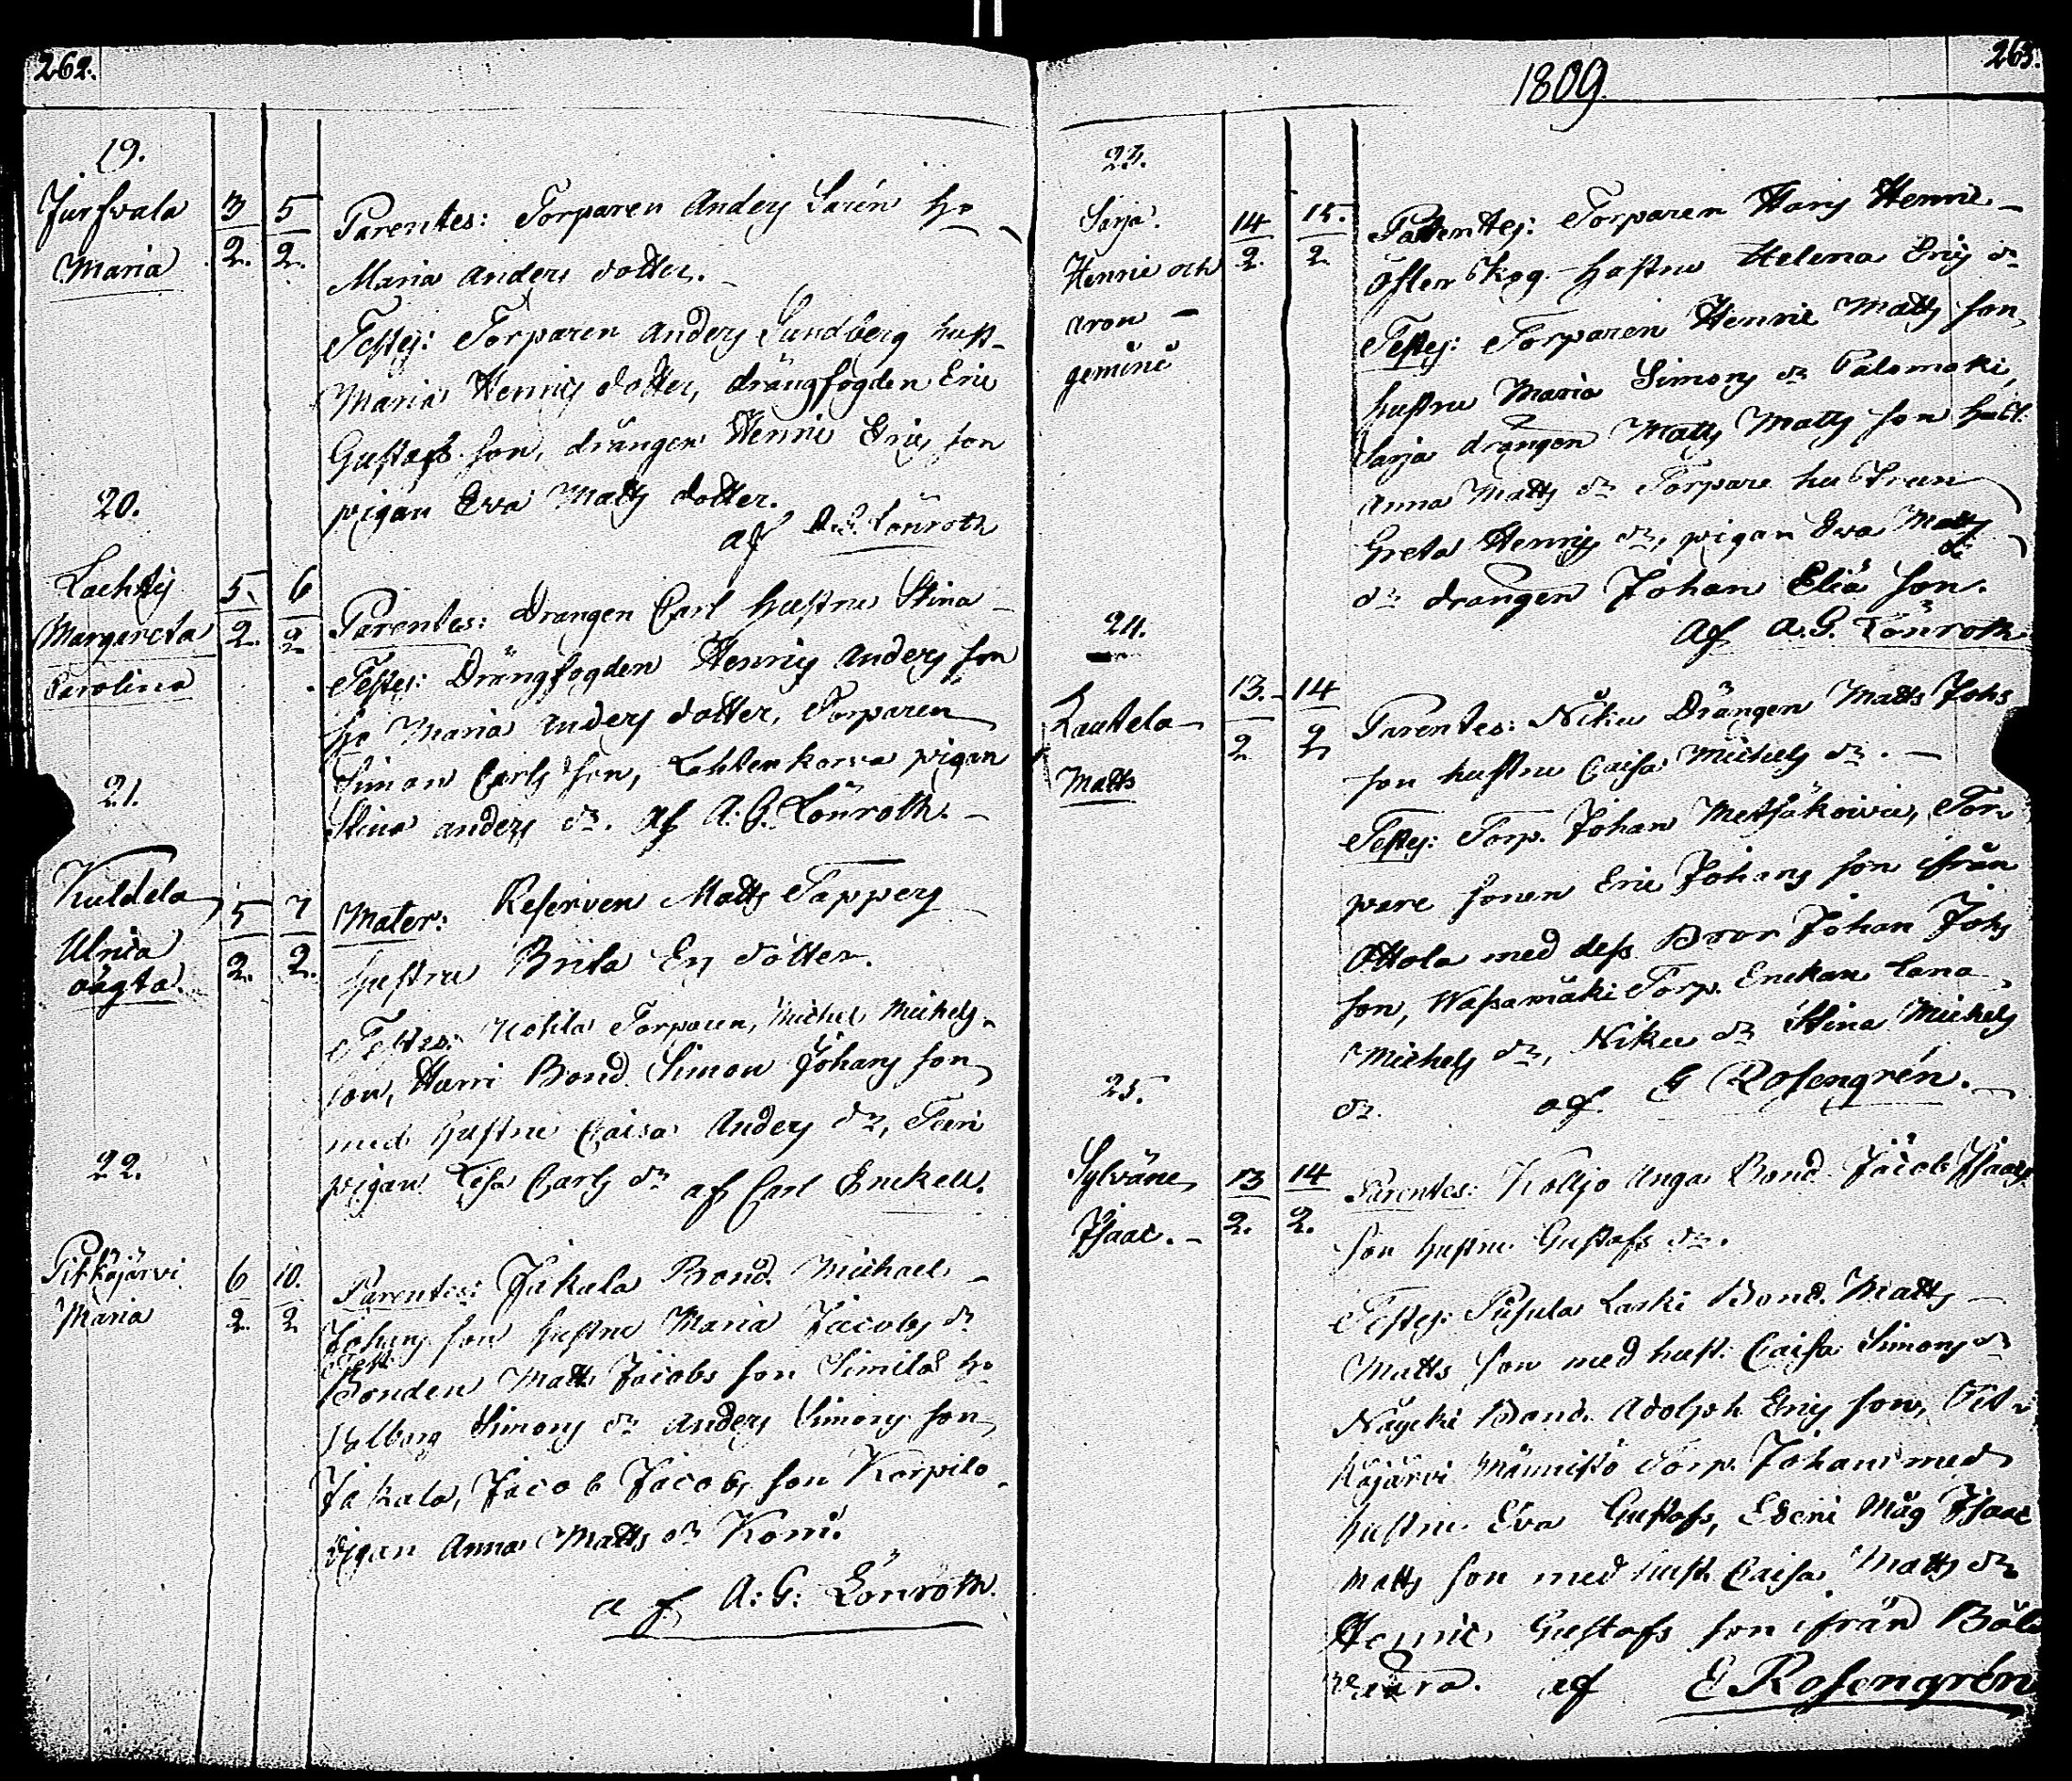 262.
19.
Jursvala
Maria
3/2. 5/2.
Parentes: Torparen Anders Sarén Ho
Maria Anders dotter.
Testes: Torparen Anders Sundberg hust.
Maria Henrics dotter, drängfogden Eric
Gustafs son, drängen Henric Erics son
pigan Eva Matts dotter.
af A.G. Lönroth
20.
Lachtis
Margareta
Carolina
5/2. 6/2
Parentes: Drängen Carl hustru Stina
Testes: Drängfogden Henrics Anders son
Ho Maria Anders dotter, Torparen
Simon Carls son, Lahtenkorva pigan
Stina Anders dr. af A.G. Lönroth.
21.
Kuldela
Ulrica
oägta.
5/2. 7/2.
Mater: Reserven Matts Tappers
hustru Brita Ers dotter.
Testes: Torparen, Michel Michels
son, Harri Bond. Simon Johans son
med hustru Caisa Anders dr,
pigan Lisa Carls dr af Carl Enckell.
22.
Pitkäjärvi
Maria
6/2. 10./2
Parentes: Jakula Bond. Michael
Johans son hustru Maria Jacobs dr
Test:
Bonden Matts Jacobs son Simila Ho
Valborg Simons dr Anders Simons son
Jakula, Jacob Jacobs son Korpilo
pigan Anna Matts dr Komi.
af A:G: Lönroth.
263.
1809.
23.
Sarja.
Henric och
Aron
gemine
14/2. 15./2
Parentes: Torparen Hans Henric
Österskog hustru Helena Erics dr
Testes: Torparen Henric Matts son,
hustru Maria Simons dr Palomäki,
Sarja drängen Matts Matts son hust.
Anna Matts dr Torpare hustrun
Greta Henrics dr, pigan Eva Matts
dr drängen Johan Eliä son.
af A.G. Lönroth
24.
Kautela
Matts
13./2 14/2
Parentes: Niku Drängen Matts Johs
son hustru Caisa Michels dr.
Testes: Torp. Johan Metsäkoivu, Tor
pare sonen Eric Johans son ifrån
Ottola med dess Bror Johan Johs
son, Wassamäki Torp. Enckan Lena
Michels dr, Niku dr Stina Michels
dr. af E Rosengrén.
25.
Sylväne
Isaac.
13/2. 14/2.
Parentes: Koljo Anga Bond. Jacob Isaacs
son hustru Gustafs dr.
Testes: Pusula Laski Bond. Matts
Matts son med hust. Caisa Simons dr
Näycki Bond. Adolph Erics son, Pit
käjärvi Männistö Torp. Johan med
hustru Eva Gustafs, Edeni Måg Isaac
Matts son med hust. Caisa Matts dr
Henric Gustafs son ifrån Böle
af E Rosengrén